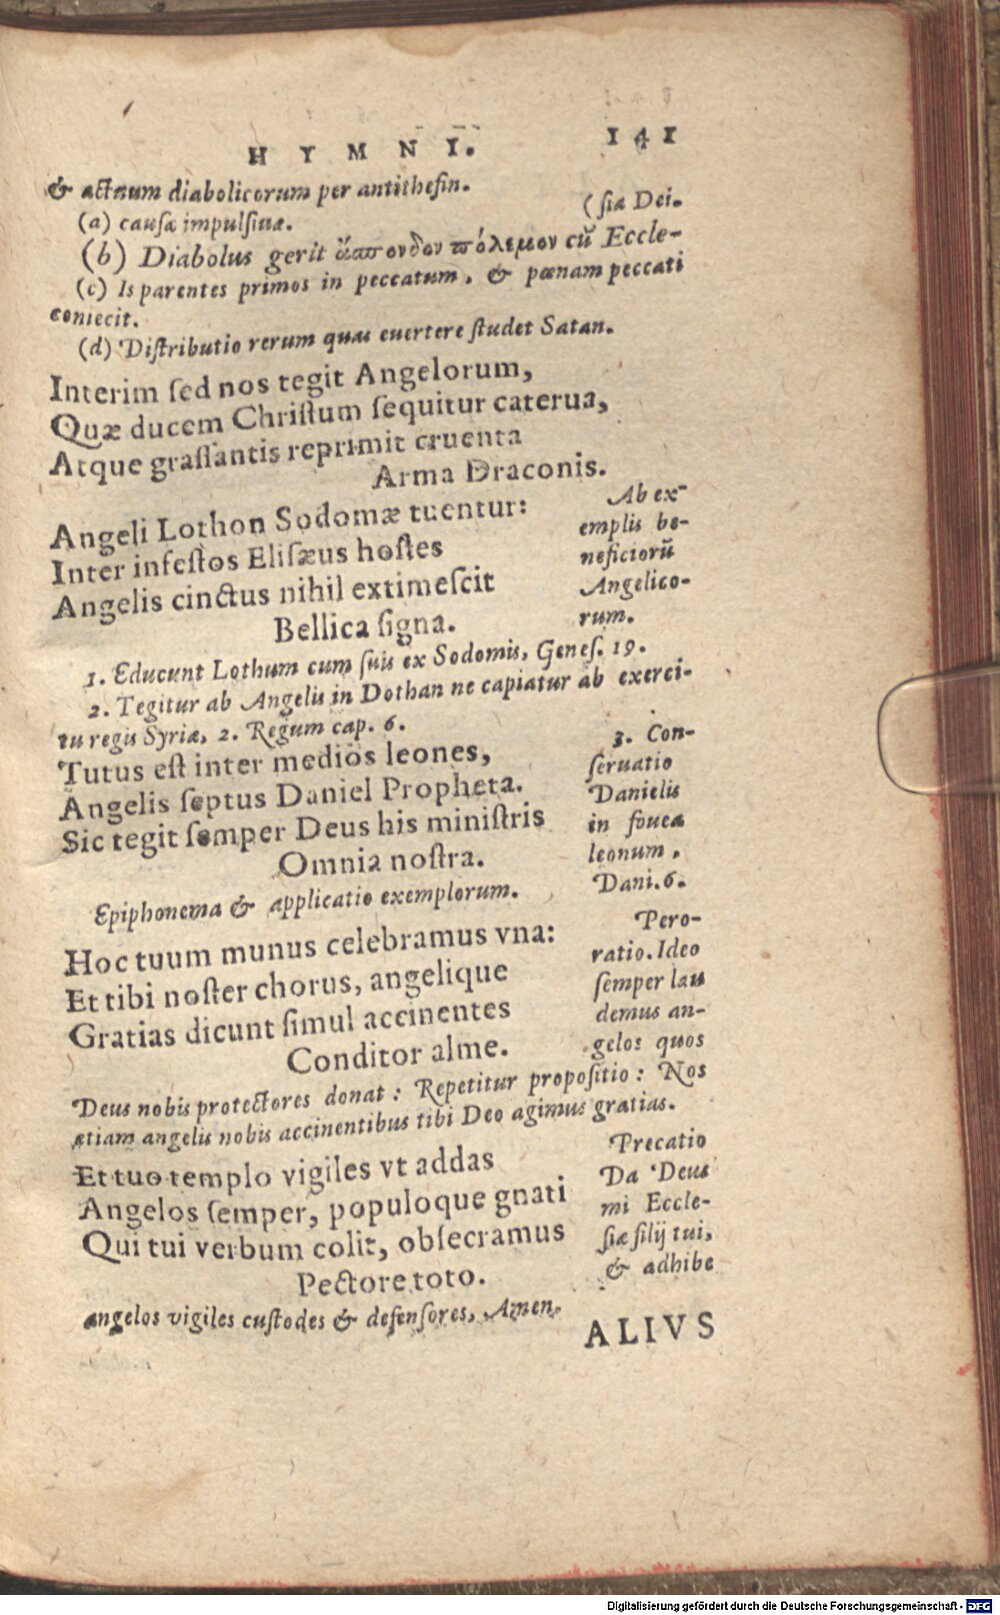 HYMNI. 141
& actuum diabolicorum per antithesin.
(a) causæ impulsiuæ. (siæ Dei.
(b) Diabolus gerit ἄσπονδον πόλεμον cū Eccle-
(c) Is parentes primos in peccatum, & pœnam peccati
coniecit.
(d) Distributio rerum quas euertere studet Satan.
Interim sed nos tegit Angelorum,
Quæ ducem Christum sequitur caterua,
Atque grassantis reprimit cruenta
Arma Draconis.
Angeli Lothon Sodomæ tuentur:
Inter infestos Elisæus hostes
Angelis cinctus nihil extimescit
Bellica signa.
Ab ex-
emplis be-
neficiorū
Angelico-
rum.
1. Educunt Lothum cum suis ex Sodomis, Genes. 19.
2. Tegitur ab Angelis in Dothan ne capiatur ab exerci-
tu regis Syriæ, 2. Regum cap. 6.
Tutus est inter medios leones,
Angelis septus Daniel Propheta.
Sic tegit semper Deus his ministris
Omnia nostra.
3. Con-
seruatio
Danielis
in fouea
leonum.
Dani. 6.
Epiphonema & applicatio exemplorum.
Hoc tuum munus celebramus vna:
Et tibi noster chorus, angelique
Gratias dicunt simul accinentes
Conditor alme.
Pero-
ratio. Ideo
semper lau
demus an-
gelos quos
Deus nobis protectores donat: Repetitur propositio: Nos
etiam angelis nobis accinentibus tibi Deo agimus gratias.
Et tuo templo vigiles vt addas
Angelos semper, populoque gnati
Qui tui verbum colit, obsecramus
Pectore toto.
Precatio
Da Deus
mi Eccle-
siæ filij tui,
& adhibe
angelos vigiles custodes & defensores, Amen.
ALIVS
Digitalisierung gefördert durch die Deutsche Forschungsgemeinschaft - DFG